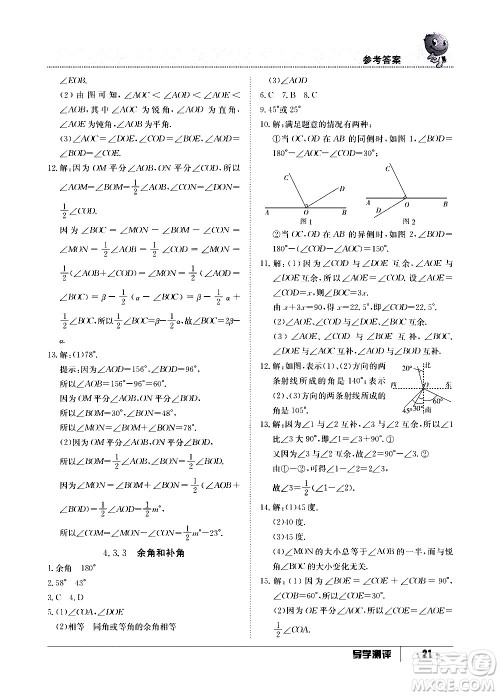 参考答案
∠EOB.
(2)由图可知,∠AOC<∠AOD<∠AOE<
∠AOB,其中∠AOC为锐角,∠AOD为直角,
∠AOE为钝角,∠AOB为平角.
(3)∠AOC=∠DOE,∠COD=∠BOE,∠AOD=
∠BOD,∠AOE=∠COB.
12.解:因为OM平分∠AOB,ON平分∠COD,所以
∠AOM=∠BOM=1/2∠AOB,∠CON=∠DON=
1/2∠COD.
因为∠BOC=∠MON-∠BOM-∠CON=
∠MON-1/2∠AOB-1/2∠COD=∠MON-
1/2(∠AOB+∠COD)=∠MON-1/2(∠AOD-
∠BOC)=β-1/2(α-∠BOC)=β-1/2α+
1/2∠BOC,所以1/2∠BOC=β-1/2α.故∠BOC=2β-
α.
13.解:(1)78°.
提示:∠AOD=156°,∠BOD=96°,
所以∠AOB=156°-96°=60°.
因为OM平分∠AOB,ON平分∠BOD,
所以∠BOM=30°,∠BON=48°.
所以∠MON=∠BOM+∠BON=78°.
(2)因为OM平分∠AOC,ON平分∠BOD,
所以∠COM=1/2∠AOC,∠BON=1/2∠BOD.
所以∠MON=∠COM+∠BON-∠BOC=
1/2∠AOC+1/2∠BOD-∠BOC=1/2(∠AOC+
∠BOD)-∠BOC=1/2×(156°+22°)-22°=67°.
4.3.3 余角和补角
1.余角 180°
2.58° 43°
3.C 4.D
5.(1)∠COA,∠DOE
(2)相等 同角或等角的余角相等
(3)∠AOD
6.C 7.B 8.C
9.45°或25°
10.解:满足题意的情况有两种:
①当OC,OD在AB的同侧时(如图1),∠BOD=
180°-∠AOC-∠COD=30°;
C
D
A
O
B
图1
C
A
O
B
D
图2
②当OC,OD在AB的异侧时(如图2),∠BOD=
180°-(∠COD-∠AOC)=150°.
11.解:(1)因为∠COD与∠DOE互余,∠AOE
与∠DOE互余,所以∠AOE=∠COD.设
∠COD=x,则∠BOC=3x.
由x+3x=90°,得x=22.5°,即∠COD=22.5°,
所以∠AOE=∠COD=22.5°.
(2)∠AOE与∠COD互余,∠BOC与∠COD
互余.∠AOE与∠BOE互补,∠BOC与∠AOC
互补,∠COD与∠AOC互补.
12.解:如图,表示(1),(2)方向的两
条射线所成的角是140°;表示
(2),(3)方向的两条射线所成的
角是105°.
北
20°
西
O
东
60°
45°
30°
南
13.解:因为∠1与∠2互补,所以∠1+∠2=180°①.
因为∠2与∠3互余,所以∠2+∠3=90°,所以
2∠2+2∠3=180°②.
由①-②,得∠1-∠2-2∠3=0,
故∠3=1/2(∠1-∠2).
14.解:(1)45度.
(2)40度.
(3)∠MON的大小总等于∠AOB的一半,与锐角
∠BOC的变化无关.
15.解:(1)因为∠BOE=∠EOF-∠BOF=
90°-∠BOF,∠BOC=180°-∠BOF,∠COA=
1/2∠BOC,所以∠COA=1/2(180°-∠BOF)=
导学测评
21